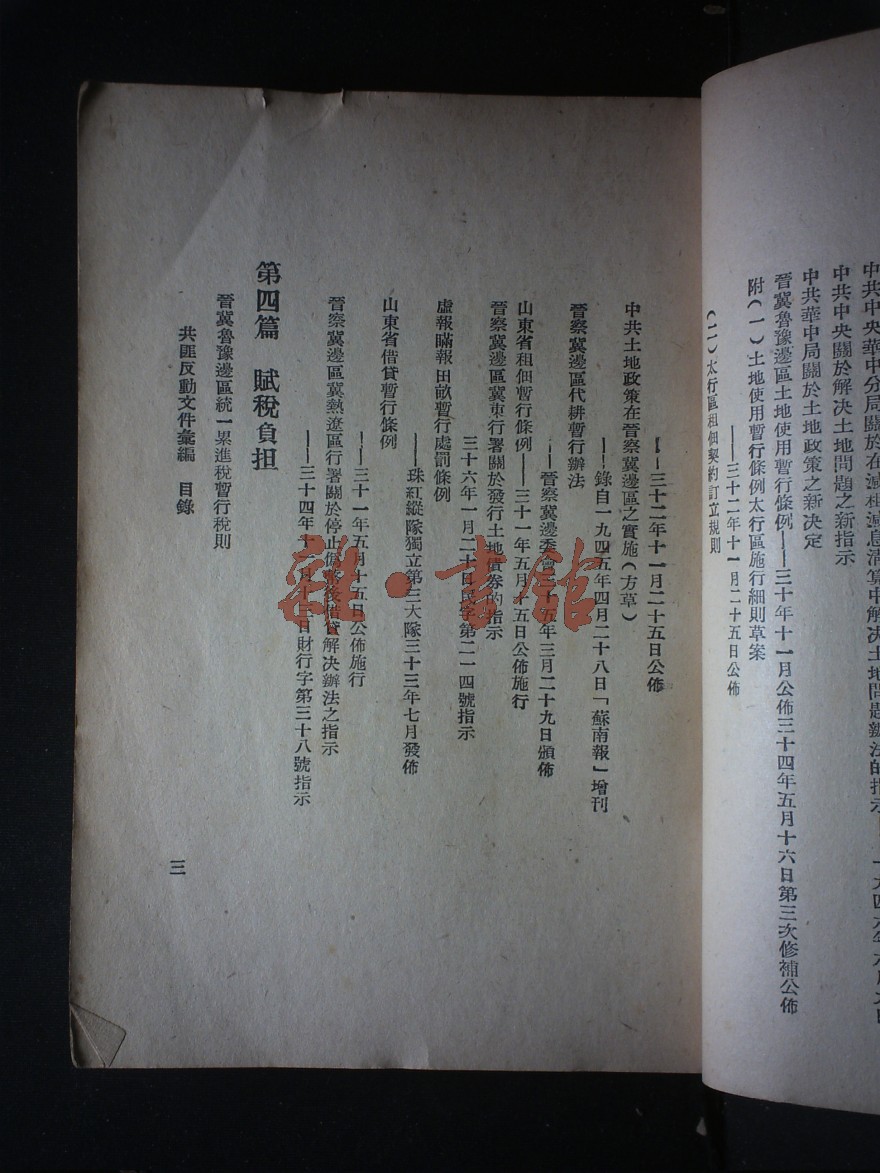 中共中央華中分局關於在減租減息清算中解決土地問題辦法的指示
中共中央關於解決土地問題之新指示
中共華中局關於土地政策之新決定
晉冀魯豫邊區土地使用暫行條例——三十年十一月公佈三十四年五月十六日第三次修補公佈
附(一)土地使用暫行條例太行區施行細則草案
——三十二年十一月二十五日公佈
(二)太行區租佃契約訂立規則
——三十二年十一月二十五日公佈
中共土地政策在晉察冀邊區之實施(方草)
——錄自一九四五年四月二十八日「蘇南報」增刊
晉察冀邊區代耕暫行辦法
——晉察冀邊委會三十五年三月二十九日頒佈
山東省租佃暫行條例——三十一年五月十五日公佈施行
晉察冀邊區冀東行署關於發行土地債券的指示
三十六年一月二十日民字第二一四號指示
虛報瞞報田畝暫行處罰條例
——珠紅縱隊獨立第三大隊三十三年七月發佈
山東省借貸暫行條例
——三十一年五月十五日公佈施行
晉察冀邊區冀熱遼區行署關於停止偽幣後借貸解決辦法之指示
——三十四年十一月十三日財行字第三十八號指示
第四篇 賦稅負担
晉冀魯豫邊區統一累進稅暫行稅則
共匪反動文件彙編 目錄
三
雜·書館